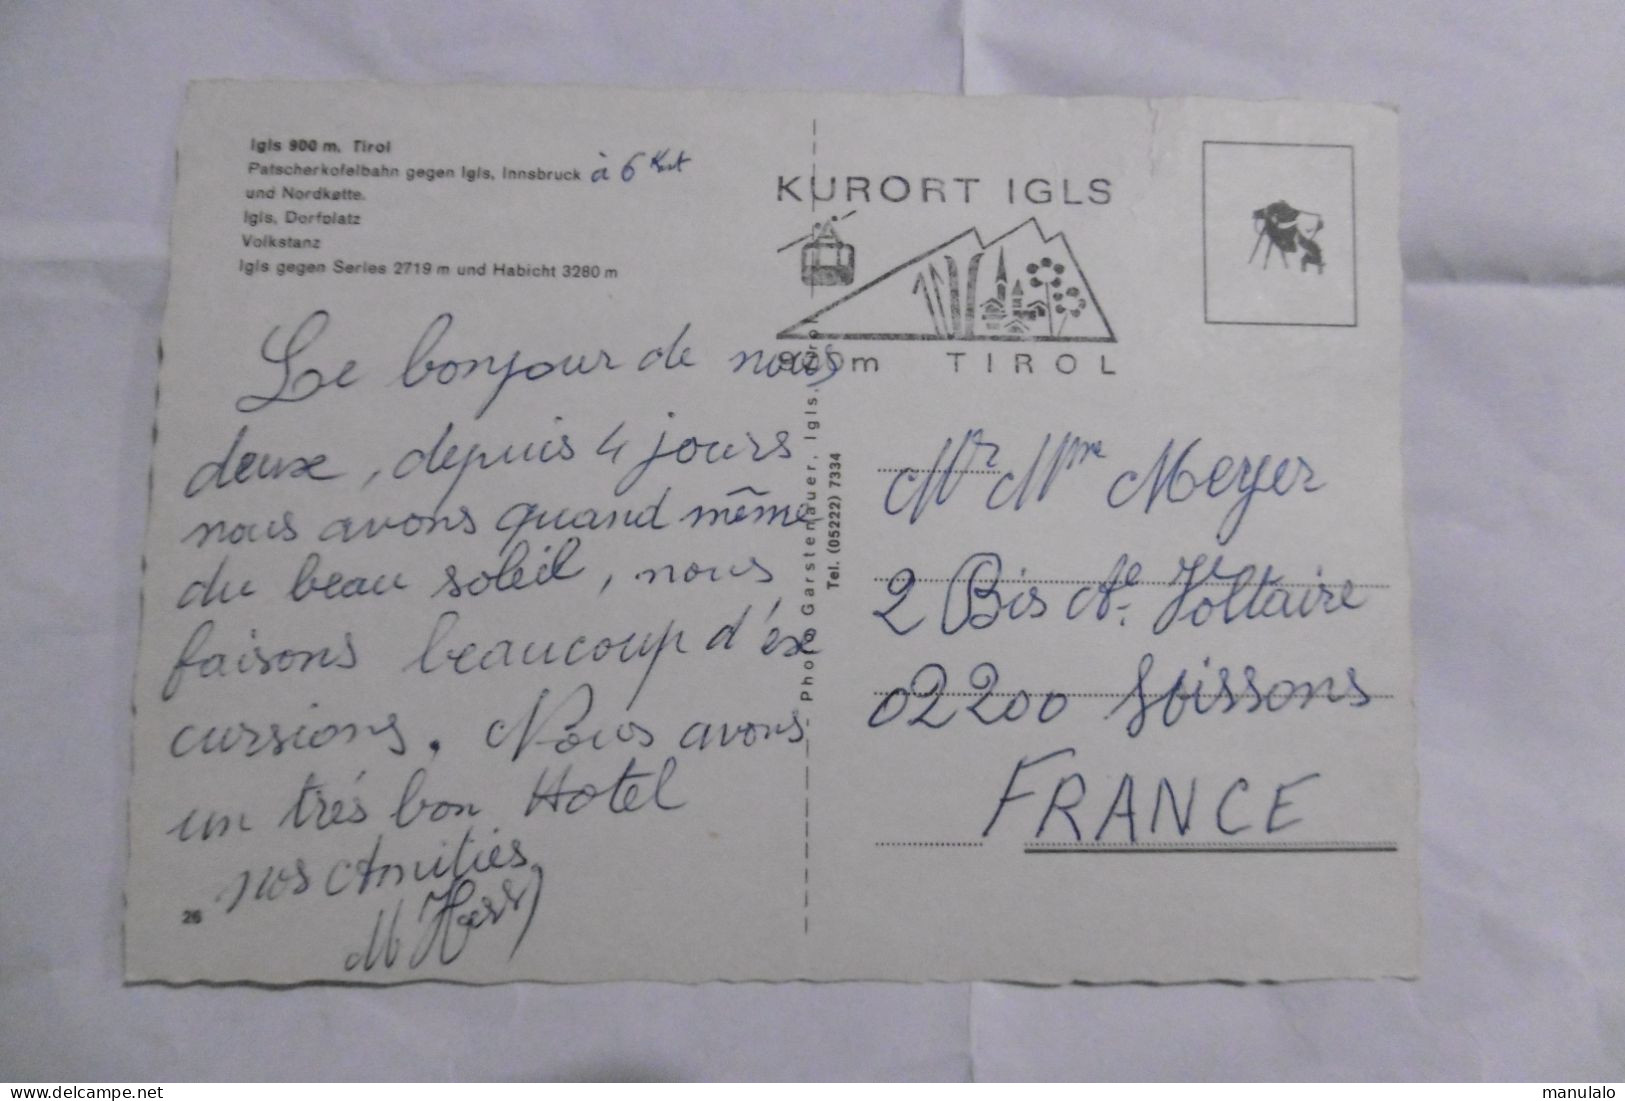 Igls 900 m, Tirol
Patscherkofelbahn gegen Igls, Innsbruck à 6 Kmt
und Nordkette.
Igls, Dorfplatz
Volkstanz
Igls gegen Serles 2719 m und Habicht 3280 m
Le bonjour de nous
deux, depuis 4 jours
nous avons quand même
du beau soleil, nous
faisons beaucoup d'ex
cursions. Nous avons
un très bon Hotel
nos Amitiés
M Hess
26
Photo Garstenauer, Igls,
Tel. (05222) 7334
KURORT IGLS
TIROL
Mr Mme Meyer
2 Bis Ae. Voltaire
02200 Soissons
FRANCE
delcampe.net
manulalo